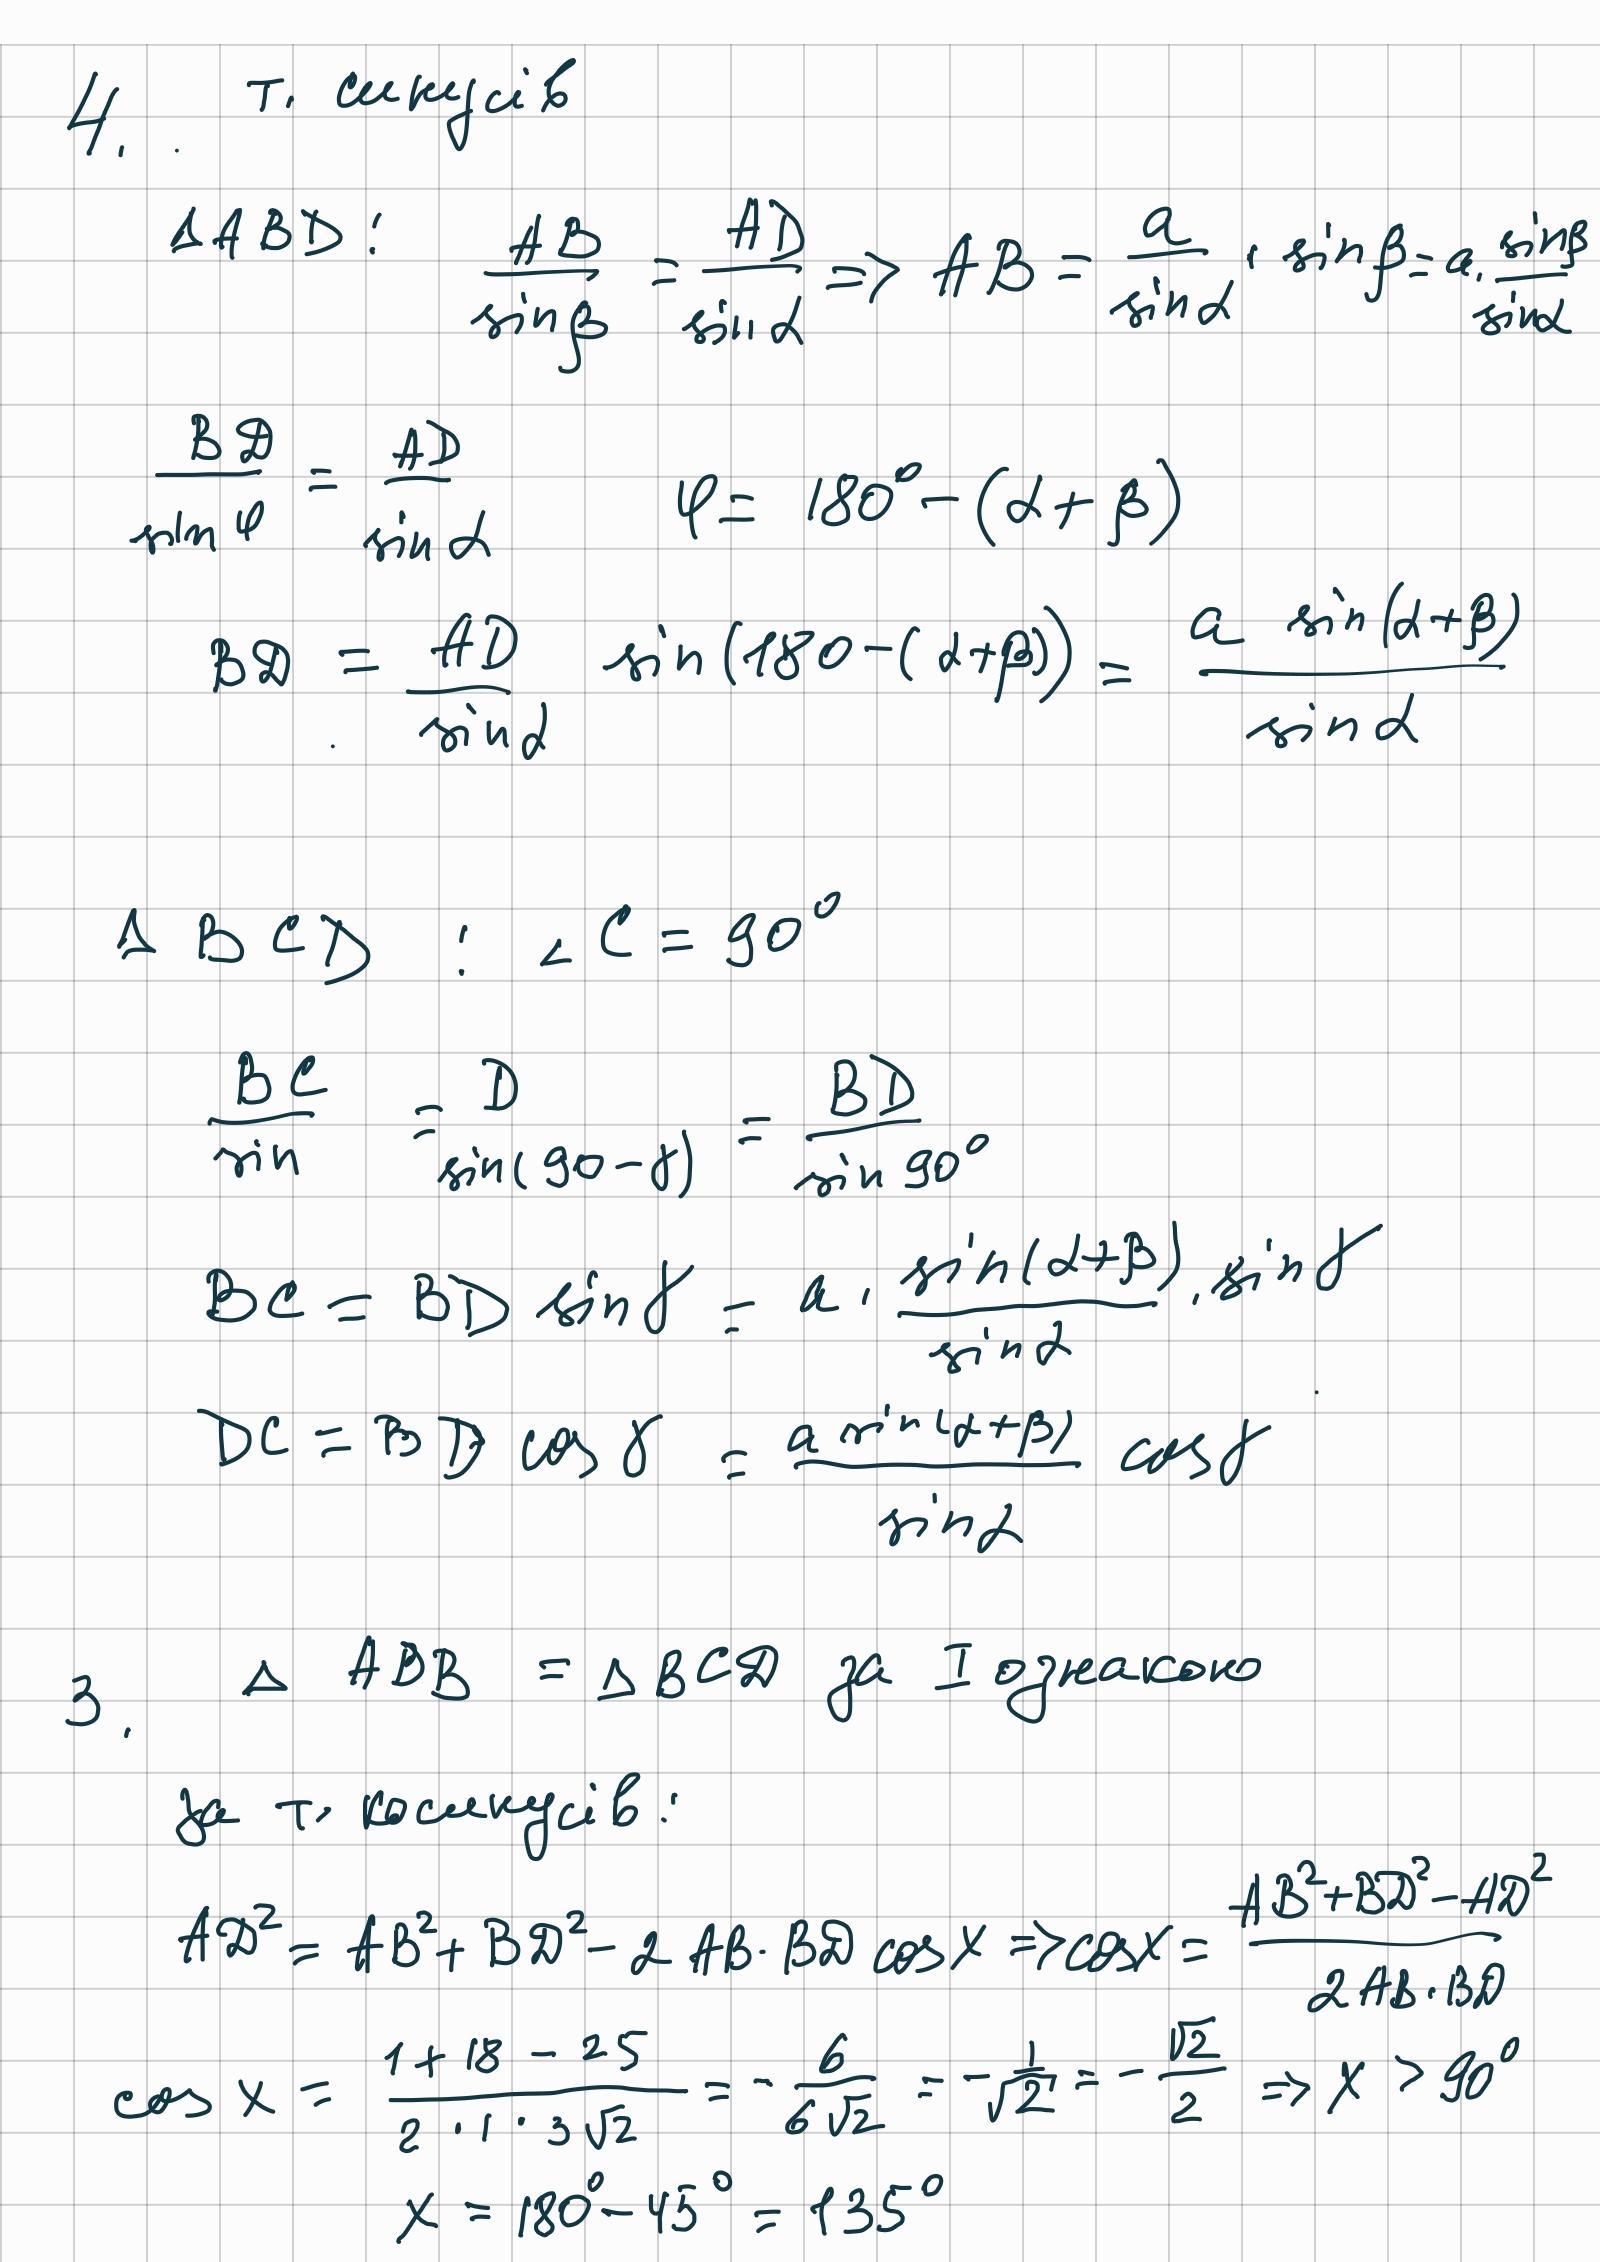 4. т. синусів
ΔABD: AB/sinβ = AD/sinα => AB = a/sinα · sinβ = a · sinβ/sinα
BD/sinφ = AD/sinα φ = 180° - (α+β)
BD = AD/sinα sin(180-(α+β)) = a sin(α+β)/sinα
Δ BCD : ∠C = 90°
BC/sin = D/sin(90-γ) = BD/sin90°
BC = BD sinγ = a · sin(α+β)/sinα · sinγ
DC = BD cosγ = a sin(α+β)/sinα cosγ
3. Δ ABB = ΔBCD за I ознакою
За т. косинусів:
AD² = AB² + BD² - 2AB·BD cosx => cosx = AB²+BD²-AD²/2AB·BD
cos x = 1+18-25/2·1·3√2 = -6/6√2 = -1/√2 = -√2/2 => x > 90°
x = 180° - 45° = 135°